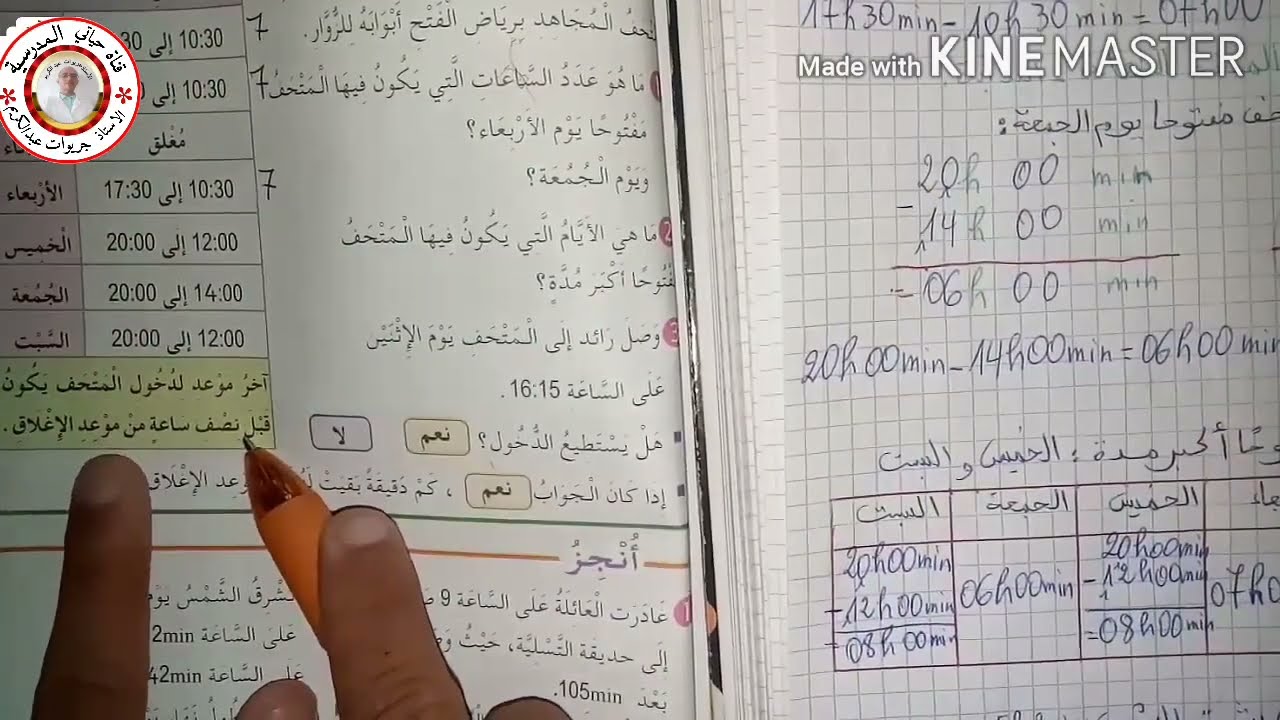 قناة حياتي المدرسية
الاستاذ جريوات عبدالكريم
Made with KINEMASTER
10:30 إلى
7
10:30 إلى
7
مُغْلق
الأرْبعاء 10:30 إلى 17:30
7
الْخميس 12:00 إلى 20:00
الجُمُعة 14:00 إلى 20:00
السَّبْت 12:00 إلى 20:00
آخرُ موْعد لدُخُول الْمَتْحف يَكُونُ
قَبْلَ نصْف ساعةٍ منْ موْعدِ الإغْلاقِ.
الْمُجَاهِد بِرِيَاض الْفَتْح أَبْوَابَهُ لِلزُّوَّار.
1 مَا هُوَ عَدَدُ السَّاعَاتِ الَّتِي يَكُونُ فِيهَا الْمَتْحَفُ
مَفْتُوحًا يَوْم الأرْبِعَاء؟
وَيَوْم الْجُمُعَة؟
2 مَا هيَ الأيَّامُ الَّتي يَكُونُ فيهَا الْمَتْحَفُ
أكْبَر مُدَّةٍ؟
3 وَصَلَ رَائد إلَى الْمَتْحَفِ يَوْمَ الإثْنَيْن
عَلَى السَّاعَة 16:15 .
هَلْ يَسْتَطيعُ الدُّخُول؟ نعم لا
إذا كَانَ الْجَوَابُ نعم ، كَمْ دَقيقَةً بَقيَتْ
الإغْلَاق
أُنْجِزُ
1 غَادَرَت الْعَائلَةُ عَلَى السَّاعَة 9
إلَى حديقة التَّسْليَة، حَيْثُ
بَعْدَ 105min.
تُشْرقُ الشَّمْسُ
عَلَى السَّاعَة 2min
42min
17h30min - 10h30min = 07h00
مفتوحا يوم الجمعة:
20h 00 min
- 14h 00 min
= 06h 00 min
20h00min - 14h00min = 06h00min
أكبر مدة: الخميس و السبت
الخميس الجمعة السبت
07h0
20h00min
- 12h00min
= 08h00min
06h00min
20h00min
- 12h00min
= 08h00min